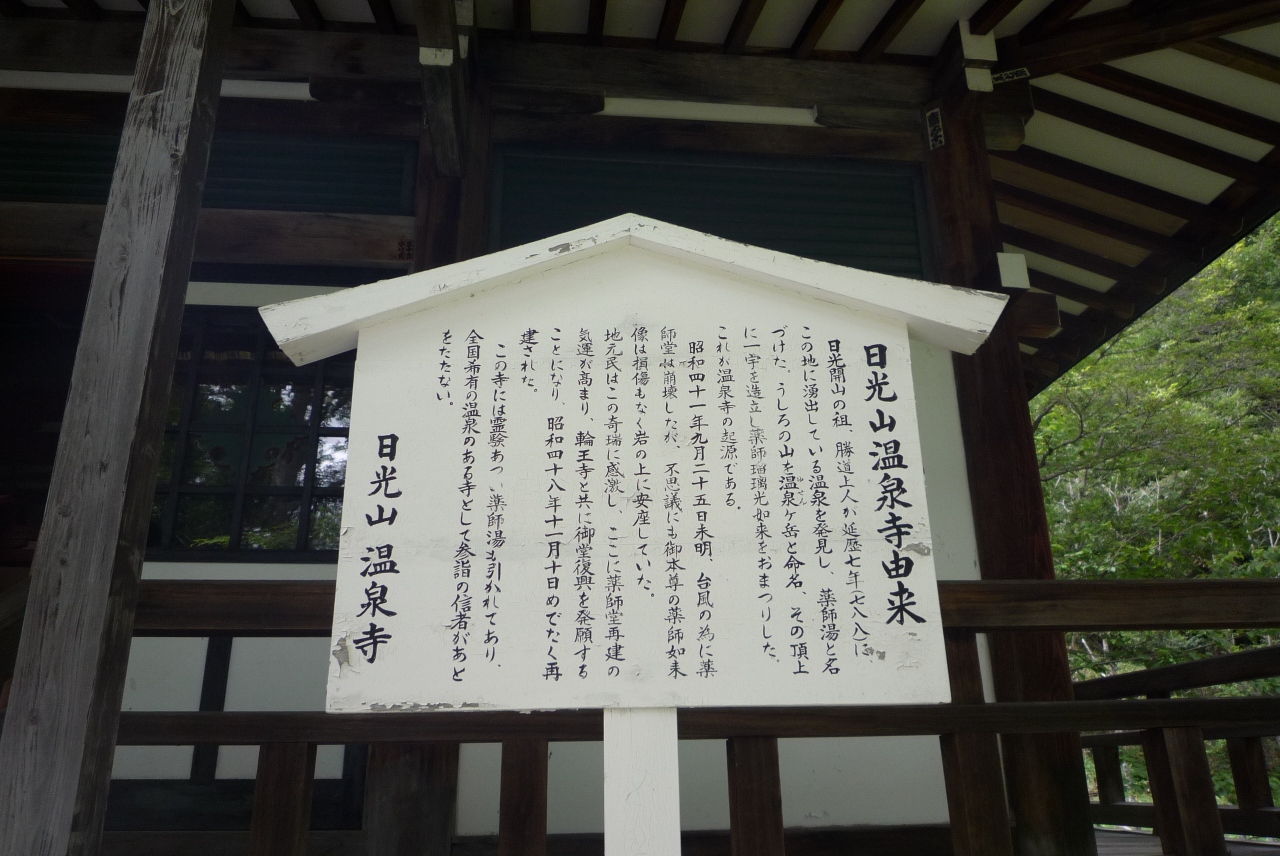 日光山温泉寺由来
日光開山の祖、勝道上人が延歴七年(七八八)に、
この地に湧出している温泉を発見し、薬師湯と名
づけた。うしろの山を温泉ヶ岳と命名、その頂上
に一宇を造立し薬師瑠璃光如来をおまつりした。
これが温泉寺の起源である。
昭和四十一年九月二十五日未明、台風の為に薬
師堂は崩壊したが、不思議にも御本尊の薬師如来
像は損傷もなく岩の上に安座していた。
地元民はこの奇瑞に感激し、ここに薬師堂再建の
気運が高まり、輪王寺と共に御堂復興を発願する
ことになり、昭和四十八年十一月十日めでたく再
建された。
この寺には霊験あつい薬師湯も引かれてあり、
全国希有の温泉のある寺として参詣の信者があと
をたたない。
日光山 温泉寺